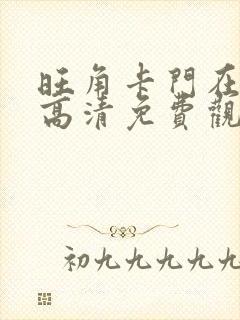 旺角卡門在
高清免費觀
初九九九九九